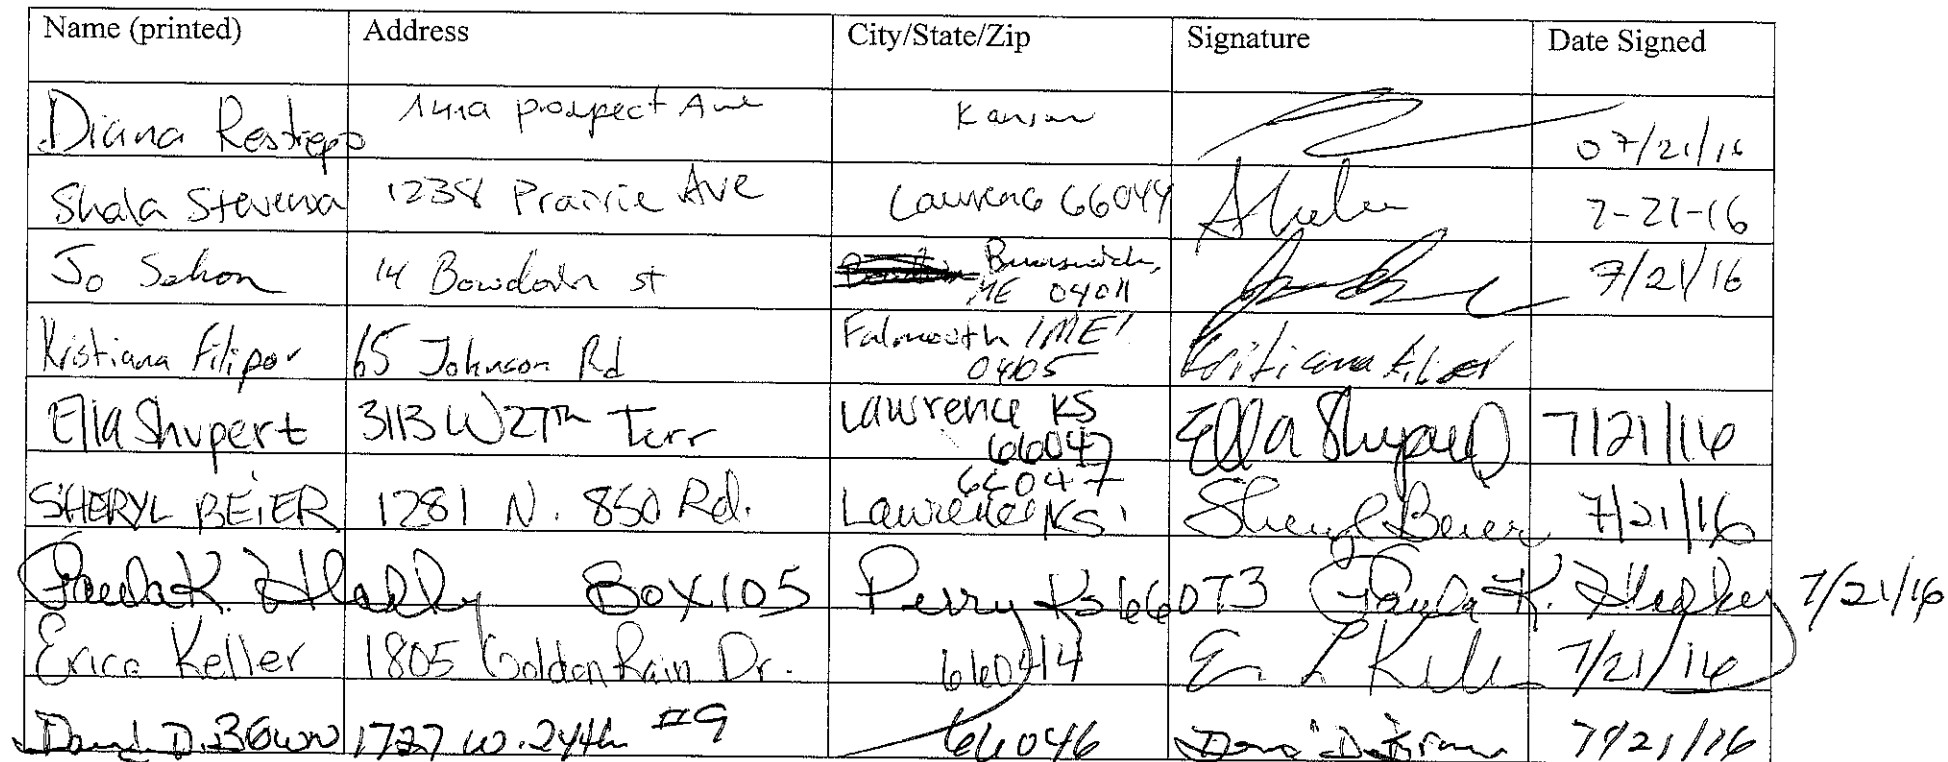 Name (printed) Address City/State/Zip Signature Date Signed
Diana Restrepo prospect Ave Kansas 07/21/16
Shala Stevenson 1238 Prairie Ave Lawrence 66044 7-21-16
Jo 14 Bowdoin st Brunswick, ME 04011 7/21/16
Kristiana Filipov 65 Johnson Rd Falmouth /ME/ 04105 Kristiana Filipov
Ella Shupert 3113 W 27th Terr Lawrence KS 66047 Ella Shupert 7/21/16
SHERYL BEIER 1281 N. 850 Rd. Lawrence KS 66047 Sheryl Beier 7/21/16
Paula K. Box 105 Perry Ks 66073 Paula K. 7/21/16
Erica Keller 1805 Golden Rain Dr. 66044 7/21/16
D. Brown 1727 W. 24th #9 66046 7/21/16